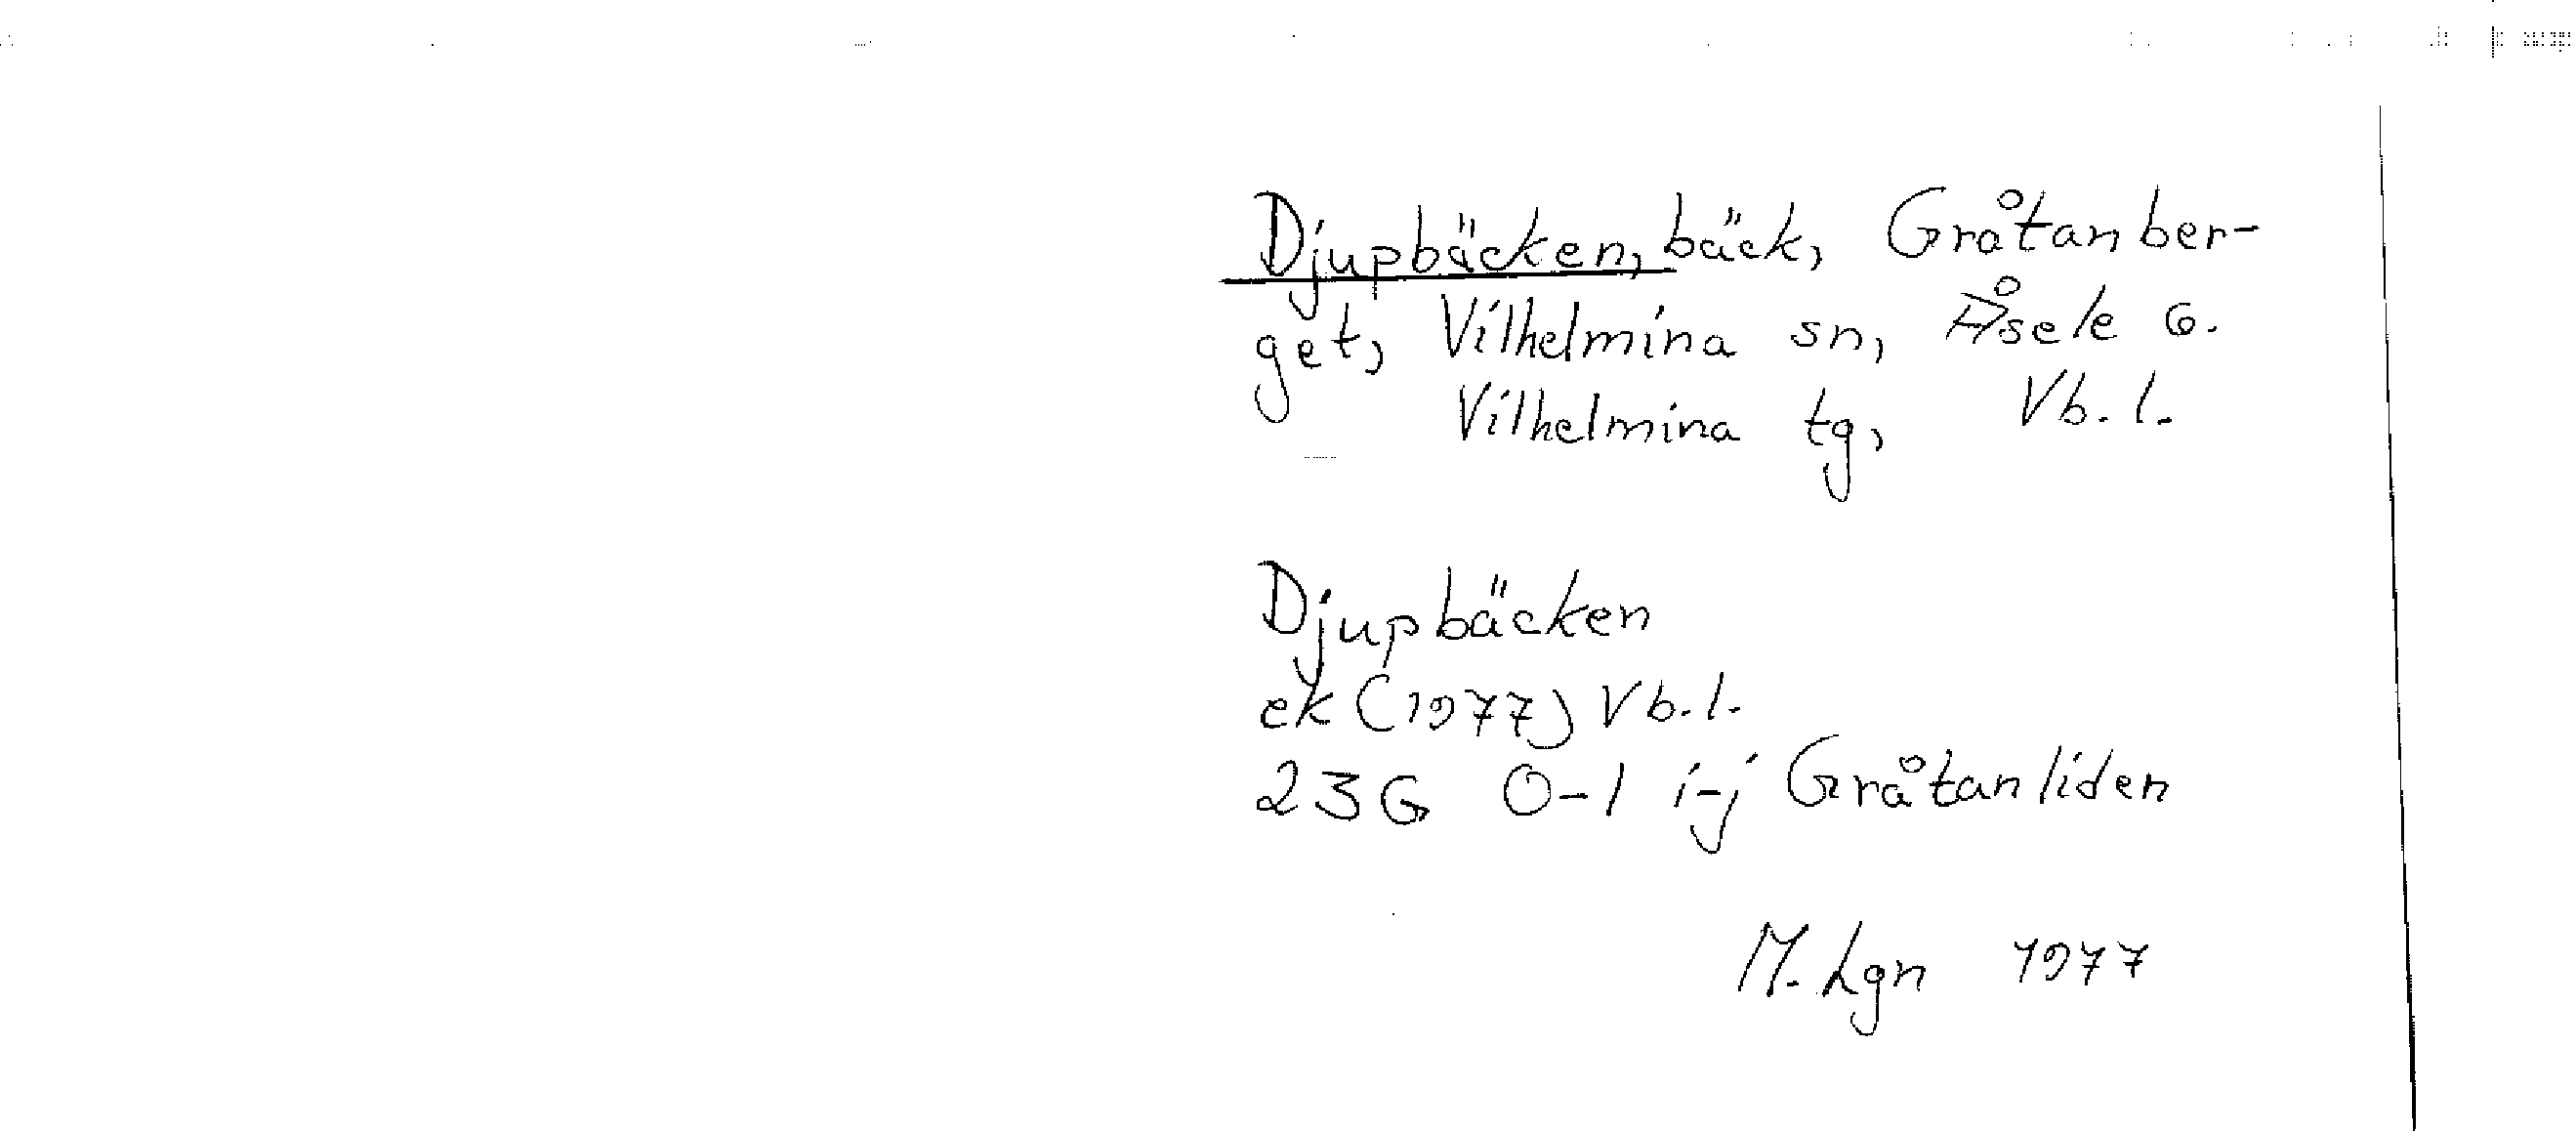 Djupbäcken, bäck, Gråtanber-
get, Vilhelmina sn, Åsele G.
Vilhelmina tg, Vb. l.
Djupbäcken
ek (1977) Vb. l.
23G 0-1 i-j Gråtanliden
M. Lgn 1977